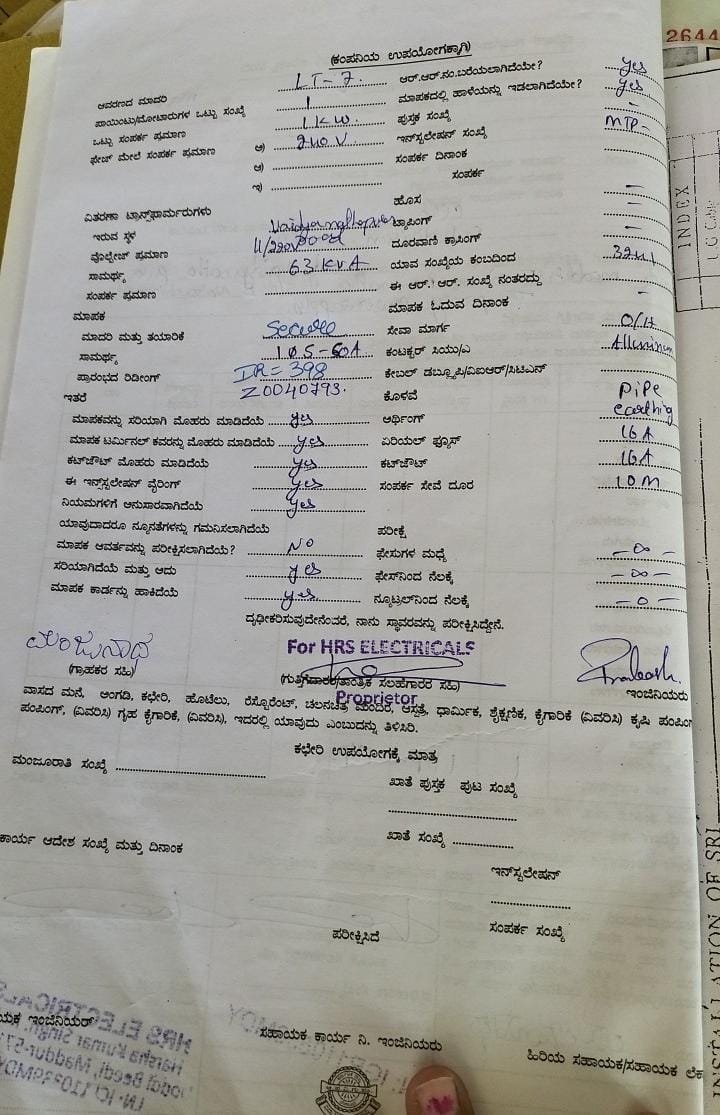 2644
(ಕಂಪನಿಯ ಉಪಯೋಗಕ್ಕಾಗಿ)
ಆವರಣದ ಮಾದರಿ LT-7. ಆರ್.ಆರ್.ನಂ.ಬರೆಯಲಾಗಿದೆಯೇ? yes
ಪಾಯಿಂಟು/ಮೋಟಾರುಗಳ ಒಟ್ಟು ಸಂಖ್ಯೆ 1 ಮಾಪಕದಲ್ಲಿ ಹಾಳೆಯನ್ನು ಇಡಲಾಗಿದೆಯೇ? yes
ಒಟ್ಟು ಸಂಪರ್ಕ ಪ್ರಮಾಣ 1 KW. ಪುಸ್ತಕ ಸಂಖ್ಯೆ -
ಫೇಜ್ ಮೇಲೆ ಸಂಪರ್ಕ ಪ್ರಮಾಣ ಅ) 240V ಇನ್‌ಸ್ಟಲೇಷನ್ ಸಂಖ್ಯೆ MTP-
ಆ) ಸಂಪರ್ಕ ದಿನಾಂಕ
ಇ) ಸಂಪರ್ಕ
ವಿತರಣಾ ಟ್ರಾನ್ಸ್‌ಫಾರ್ಮರುಗಳು ಹೊಸ -
ಇರುವ ಸ್ಥಳ ಟ್ಯಾಪಿಂಗ್ -
ವೊಲ್ಟೇಜ್ ಪ್ರಮಾಣ 11/220V ದೂರವಾಣಿ ಕ್ರಾಸಿಂಗ್ -
ಸಾಮರ್ಥ್ಯ 63 KVA ಯಾವ ಸಂಖ್ಯೆಯ ಕಂಬದಿಂದ
ಸಂಪರ್ಕ ಪ್ರಮಾಣ ಈ ಆರ್. ಆರ್. ಸಂಖ್ಯೆ ನಂತರದ್ದು
ಮಾಪಕ ಮಾಪಕ ಓದುವ ದಿನಾಂಕ -
ಮಾದರಿ ಮತ್ತು ತಯಾರಿಕೆ Secure ಸೇವಾ ಮಾರ್ಗ O/H
ಸಾಮರ್ಥ್ಯ 10S-60A ಕಂಟಕ್ಟರ್ ಸಿಯು/ಎ Alluminum
ಪ್ರಾರಂಭದ ರಿಡೀಂಗ್ IR = 398 ಕೇಬಲ್ ಡಬ್ಲ್ಯೂಪಿ/ವಿಐಆರ್/ಸಿಟಿಎಸ್
ಇತರೆ Z0040793. ಕೊಳವೆ pipe
ಮಾಪಕವನ್ನು ಸರಿಯಾಗಿ ಮೊಹರು ಮಾಡಿದೆಯೆ yes ಅರ್ಥಿಂಗ್ earthing
ಮಾಪಕ ಟರ್ಮಿನಲ್ ಕವರನ್ನು ಮೊಹರು ಮಾಡಿದೆಯೆ yes ಏರಿಯಲ್ ಫ್ಯೂಸ್ 16 A
ಕಟ್‌ಔಟ್ ಮೊಹರು ಮಾಡಿದೆಯೆ yes ಕಟ್‌ಔಟ್ 16A
ಈ ಇನ್‌ಸ್ಟಲೇಷನ್ ವೈರಿಂಗ್ yes ಸಂಪರ್ಕ ಸೇವೆ ದೂರ 10M
ನಿಯಮಗಳಿಗೆ ಅನುಸಾರವಾಗಿದೆಯೆ yes
ಯಾವುದಾದರೂ ನ್ಯೂನತೆಗಳನ್ನು ಗಮನಿಸಲಾಗಿದೆಯೆ ಪರೀಕ್ಷೆ
ಮಾಪಕ ಆವರ್ತವನ್ನು ಪರೀಕ್ಷಿಸಲಾಗಿದೆಯೆ? NO ಫೇಸುಗಳ ಮಧ್ಯೆ -∞-
ಸರಿಯಾಗಿದೆಯೆ ಮತ್ತು ಅದು yes ಫೇಸ್‌ನಿಂದ ನೆಲಕ್ಕೆ -∞-
ಮಾಪಕ ಕಾರ್ಡನ್ನು ಹಾಕಿದೆಯೆ yes ನ್ಯೂಟ್ರಲ್‌ನಿಂದ ನೆಲಕ್ಕೆ -0-
ದೃಢೀಕರಿಸುವುದೇನೆಂದರೆ, ನಾನು ಸ್ಥಾವರವನ್ನು ಪರೀಕ್ಷಿಸಿದ್ದೇನೆ.
ಮಂಜುನಾಥ For HRS ELECTRICALS Prakash.
(ಗ್ರಾಹಕರ ಸಹಿ) (ಗುತ್ತಿಗೆದಾರರ/ತಾಂತ್ರಿಕ ಸಲಹೆಗಾರರ ಸಹಿ) ಇಂಜಿನಿಯರು
Proprietor
ವಾಸದ ಮನೆ, ಅಂಗಡಿ, ಕಛೇರಿ, ಹೊಟೆಲು, ರೆಸ್ಟೊರೆಂಟ್, ಚಲನಚಿತ್ರ ಮಂದಿರ, ಆಸ್ಪತ್ರೆ, ಧಾರ್ಮಿಕ, ಶೈಕ್ಷಣಿಕ, ಕೈಗಾರಿಕೆ (ವಿವರಿಸಿ) ಕೃಷಿ ಪಂಪಿಂಗ್
ಪಂಪಿಂಗ್, (ವಿವರಿಸಿ) ಗೃಹ ಕೈಗಾರಿಕೆ, (ವಿವರಿಸಿ), ಇದರಲ್ಲಿ ಯಾವುದು ಎಂಬುದನ್ನು ತಿಳಿಸಿರಿ.
ಕಛೇರಿ ಉಪಯೋಗಕ್ಕೆ ಮಾತ್ರ
ಮಂಜೂರಾತಿ ಸಂಖ್ಯೆ ಖಾತೆ ಪುಸ್ತಕ ಪುಟ ಸಂಖ್ಯೆ
ಕಾರ್ಯ ಆದೇಶ ಸಂಖ್ಯೆ ಮತ್ತು ದಿನಾಂಕ ಖಾತೆ ಸಂಖ್ಯೆ
ಇನ್‌ಸ್ಟಲೇಷನ್
ಪರೀಕ್ಷಿಸಿದೆ ಸಂಪರ್ಕ ಸಂಖ್ಯೆ
ಇಂಜಿನಿಯರ್ ಸಹಾಯಕ ಕಾರ್ಯ ನಿ. ಇಂಜಿನಿಯರು ಹಿರಿಯ ಸಹಾಯಕ/ಸಹಾಯಕ ಲೆಕ್ಕ
HRS ELECTRICALS
INDEX
INSTALLATION OF SRI